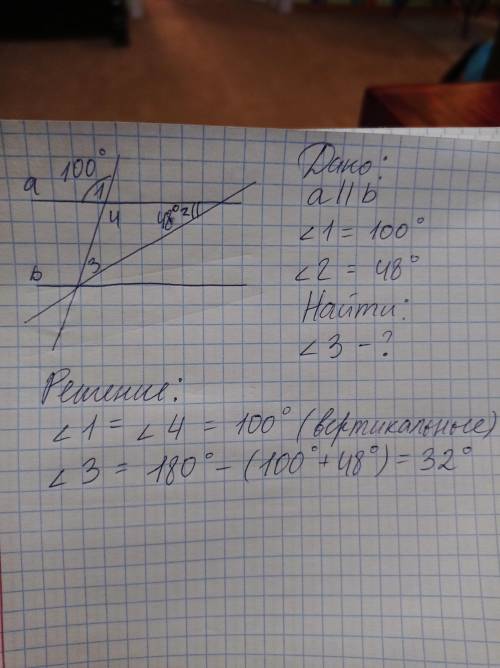 100°
a 1
4 48° 2
3
b
Дано:
a || b
∠1 = 100°
∠2 = 48°
Найти:
∠3 - ?
Решение:
∠1 = ∠4 = 100° (вертикальные)
∠3 = 180° - (100° + 48°) = 32°